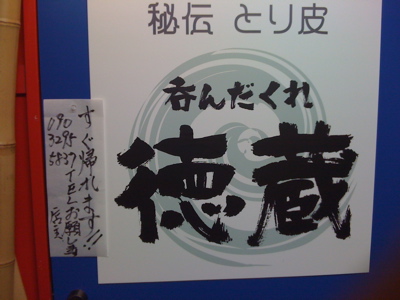 秘伝 とり皮
呑んだくれ
徳蔵
すぐ帰れます!!
090
3295
5837 TELお願いします
店主